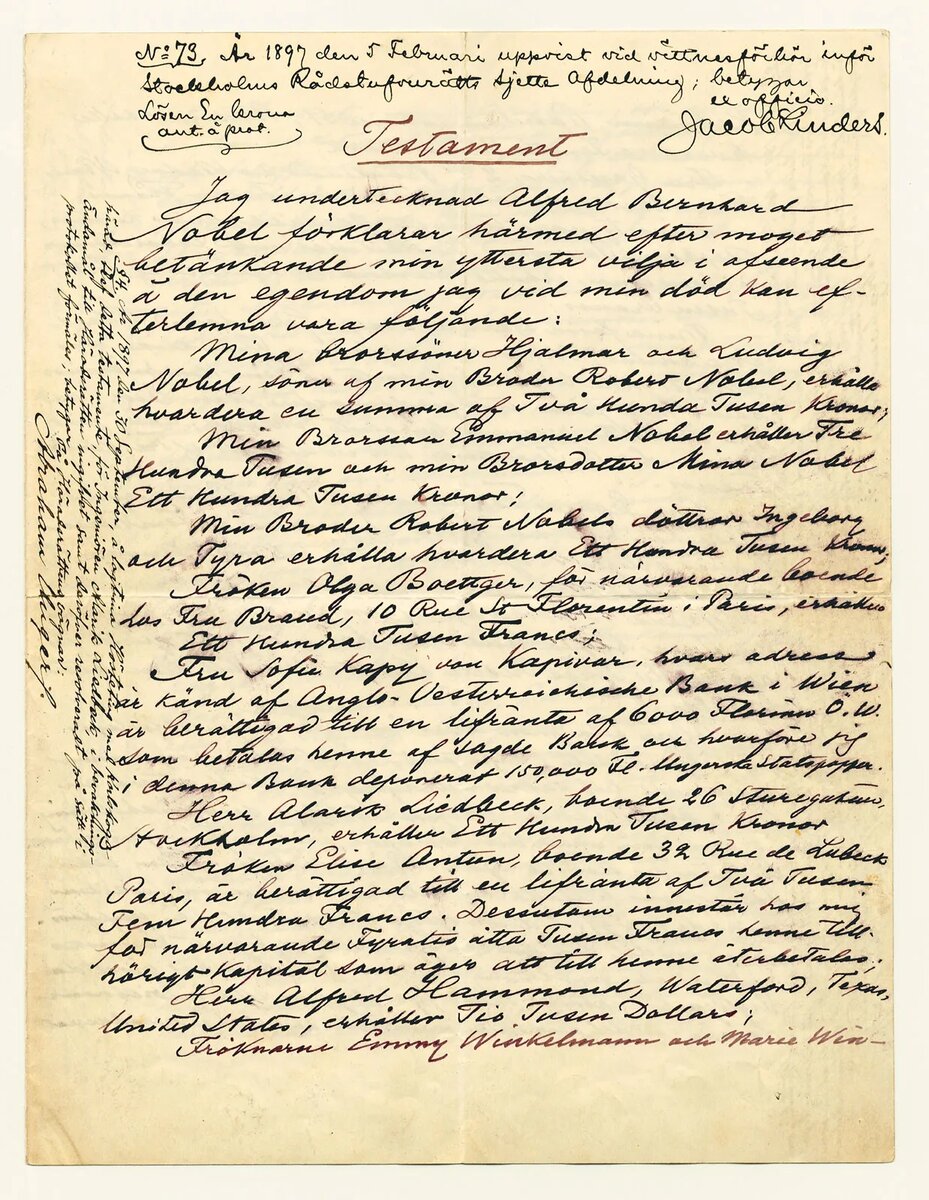 No 73. År 1897 den 5 Februari uppvist vid vittnesförhör inför
Stockholms Rådstufvurätts sjette Afdelning; betygar
ex officio.
Lösen En krona
ant. å prot.
Jacob Linders.
Testament
Jag undertecknad Alfred Bernhard
Nobel förklarar härmed efter moget
betänkande min yttersta vilja i afseende
å den egendom jag vid min död kan ef-
terlemna vara följande:
Mina brorssöner Hjalmar och Ludvig
Nobel, söner af min Broder Robert Nobel, erhålla
hvardera en summa af Två Hundra Tusen Kronor;
Min Brorsson Emmanuel Nobel erhåller Tre
Hundra Tusen och min Brorsdotter Mina Nobel
Ett Hundra Tusen Kronor;
Min Broder Robert Nobels döttrar Ingeborg
och Tyra erhålla hvardera Ett Hundra Tusen Kronor;
Fröken Olga Boettger, för närvarande boende
hos Fru Brand, 10 Rue St Florentin i Paris, erhåller
Ett Hundra Tusen Francs;
Fru Sofie Kapy von Kapivar, hvars adress
är känd af Anglo-Oesterreichische Bank i Wien
är berättigad till en lifränta af 6000 Florins Ö.W.
som betalas henne af sagde Bank och hvarföre jag
i denna Bank deponerat 150,000 Fl. Ungerska Statspapper.
Herr Alarik Liedbeck, boende 26 Sturegatan,
Stockholm, erhåller Ett Hundra Tusen Kronor
Fröken Elise Antun, boende 32 Rue de Lubeck
Paris, är berättigad till en lifränta af Två Tusen
Fem Hundra Francs. Dessutom innestår hos mig
för närvarande Fyratio åtta Tusen Francs henne till-
hörigt Kapital som äger att till henne återbetalas;
Herr Alfred Hammond, Waterford, Texas,
United States, erhåller Tio Tusen Dollars;
Fröknarne Emmy Winkelmann och Marie Win-
§ 84. År 1897 den 30 September, å lagtima Hösteting med Karlskoga
härad, blef detta testamente, för Ingeniören Alarik Liedbeck i bevaknings-
ändamål till Häradsrätten ingifvet samt derutöfver resolveradt på sätt
protokollet förmäler; betygar På Häradsrättens vägnar:
Abraham Unger.